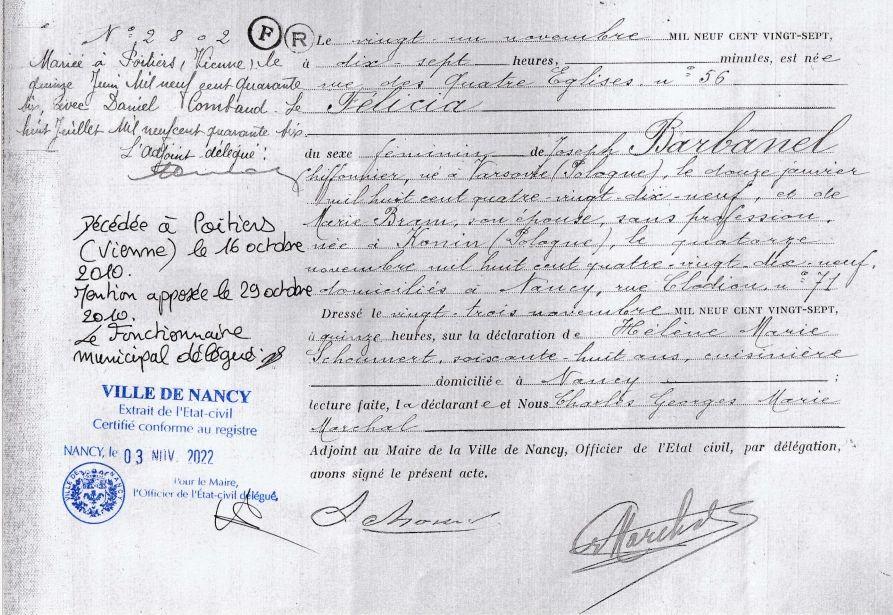 N° 2802
F R
Mariée à Poitiers, (Vienne), le
quinze Juin Mil neuf cent quarante
six, avec Daniel Combaud. Le
huit Juillet Mil neufcent quarante six.
L'adjoint délégué :
Décédée à Poitiers
(Vienne) le 16 octobre
2010.
Mention apposée le 29 octobre
2010.
Le Fonctionnaire
municipal délégué
VILLE DE NANCY
Extrait de l'Etat-civil
Certifié conforme au registre
NANCY, le 03 NOV. 2022
Pour le Maire,
l'Officier de l'État-civil délégué,
VILLE DE NANCY
Le vingt un novembre MIL NEUF CENT VINGT-SEPT,
à dix-sept heures, minutes, est née
rue des Quatre Eglises, n° 56
Félicia
du sexe féminin de Joseph Barbanel
Chiffonnier, né à Varsovie (Pologne), le douze janvier
mil huit cent quatre-vingt-dix-neuf, et de
Marie Bram, son épouse, sans profession,
née à Konin (Pologne), le quatorze
novembre mil huit cent quatre-vingt-dix-neuf,
domiciliés à Nancy, rue Clodion, n° 71
Dressé le vingt-trois novembre MIL NEUF CENT VINGT-SEPT,
à quinze heures, sur la déclaration de Hélène Marie
soixante-huit ans, cuisinière
domiciliée à Nancy ;
lecture faite, la déclarante et Nous Charles Georges Marie
Marchal
Adjoint au Maire de la Ville de Nancy, Officier de l'Etat civil, par délégation,
avons signé le présent acte.
Marchal